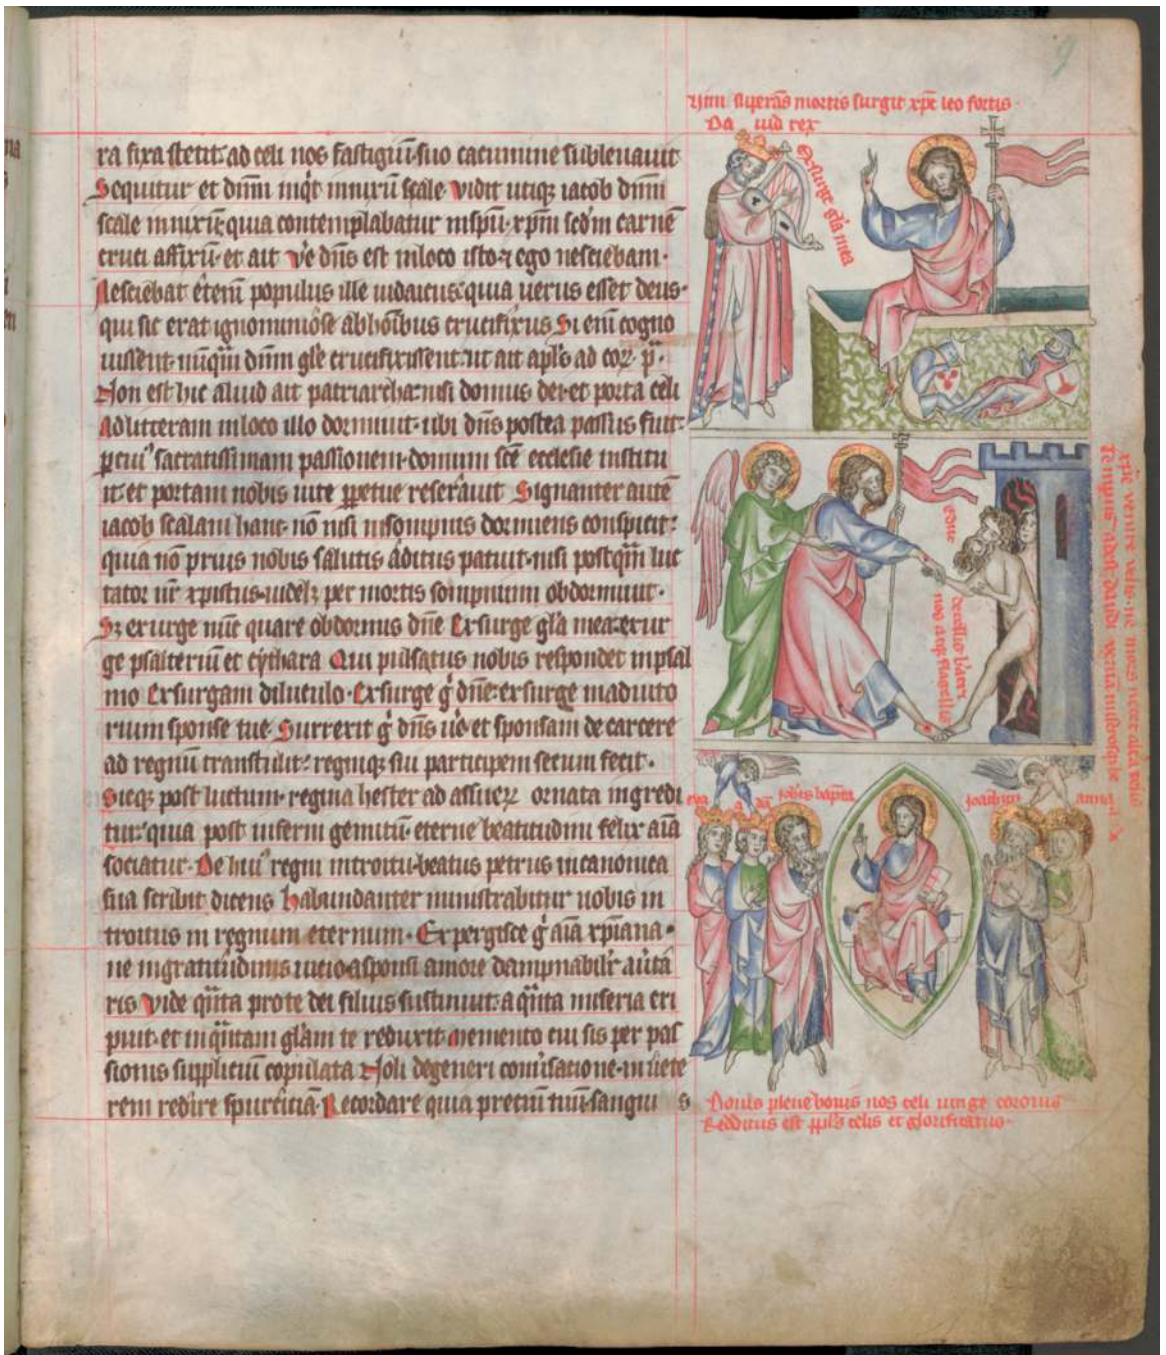 ra fixa stetit ad celi nos fastigiū suo cacumine subleuauit
Sequitur et dnm̄ inq̇t innixū scale vidit utiq; iacob dnm̄
scale innixū quia contemplabatur in spū xpm̄ scd'm carnē
cruci affixū et ait ve᷑ dn̄s est in loco isto ⁊ ego nesciebam·
Nesciebat etenī populus ille iudaicus quia uerus esset deus·
qui sic erat ignominiose ab hōibus crucifixus Si eni cogno
uissent nūq̄m dnm̄ gl'e crucifixissent ut ait apl's ad cor̄ p̄·
Non est hic aliud ait patriarcha nisi domus dei et porta celi
Ad litteram in loco illo dormiuit ubi dn̄s postea passus fuit
sacratissimam passionem domum scē ecclesie institu
it et portam nobis uite ꝑpetue reserauit Signanter autē
iacob scalam hanc nō nisi in sompnis dormiens conspicit
quia nō prius nobis salutis aditus patuit nisi postq̄m luc
tator nr̄ xpistus uidelꝫ per mortis sompnum obdormiuit·
Sꝫ exurge nūc quare obdormis dn̄e Exsurge gl'a mea exur
ge psalteriū et cythara Qui pulsatus nobis respondet in psal
mo Exsurgam diluculo· Exsurge g̊ dn̄e exsurge in adiuto
rium sponse tue Surrexit g̊ dn̄s ue᷑ et sponsam de carcere
ad regnū transtulit regniq; sui participem secum fecit·
Sicq; post luctum regina hester ad assuer̄ ornata ingredi
tur quia post inferni gemitū eterne beatitudini felix aīa
sociatur· De hui' regni introitu beatus petrus in canonica
sua scribit dicens habundanter ministrabitur uobis in
troitus in regnum eternum· Expergisce g̊ aīa xp̄iana·
ne ingratitudinis uicio a sponsi amore dampnabilr
ris Vide q̄nta pro te dei filius sustinuit a q̄nta miseria eri
puit et in q̄ntam gl'am te reduxit Memento cui sis per pas
sionis suppliciū copulata Noli degeneri conu'satione in uete
rem redire spurciciā· Recordare quia precium tuū sangui s
9
Vim superās mortis surgit xp̄c leo fortis·
Da uid rex
Exsurge gl'a mea
educ
de
nos atq; flagellis
xp̄e venire velis ne mors
Tempus adest dauid
eua
a dā
Iohīs bapt̄a
Ioachim
anna
Nouis plene bonis nos celi iunge coronis
Redditus est ppl's celis et glorificatus·